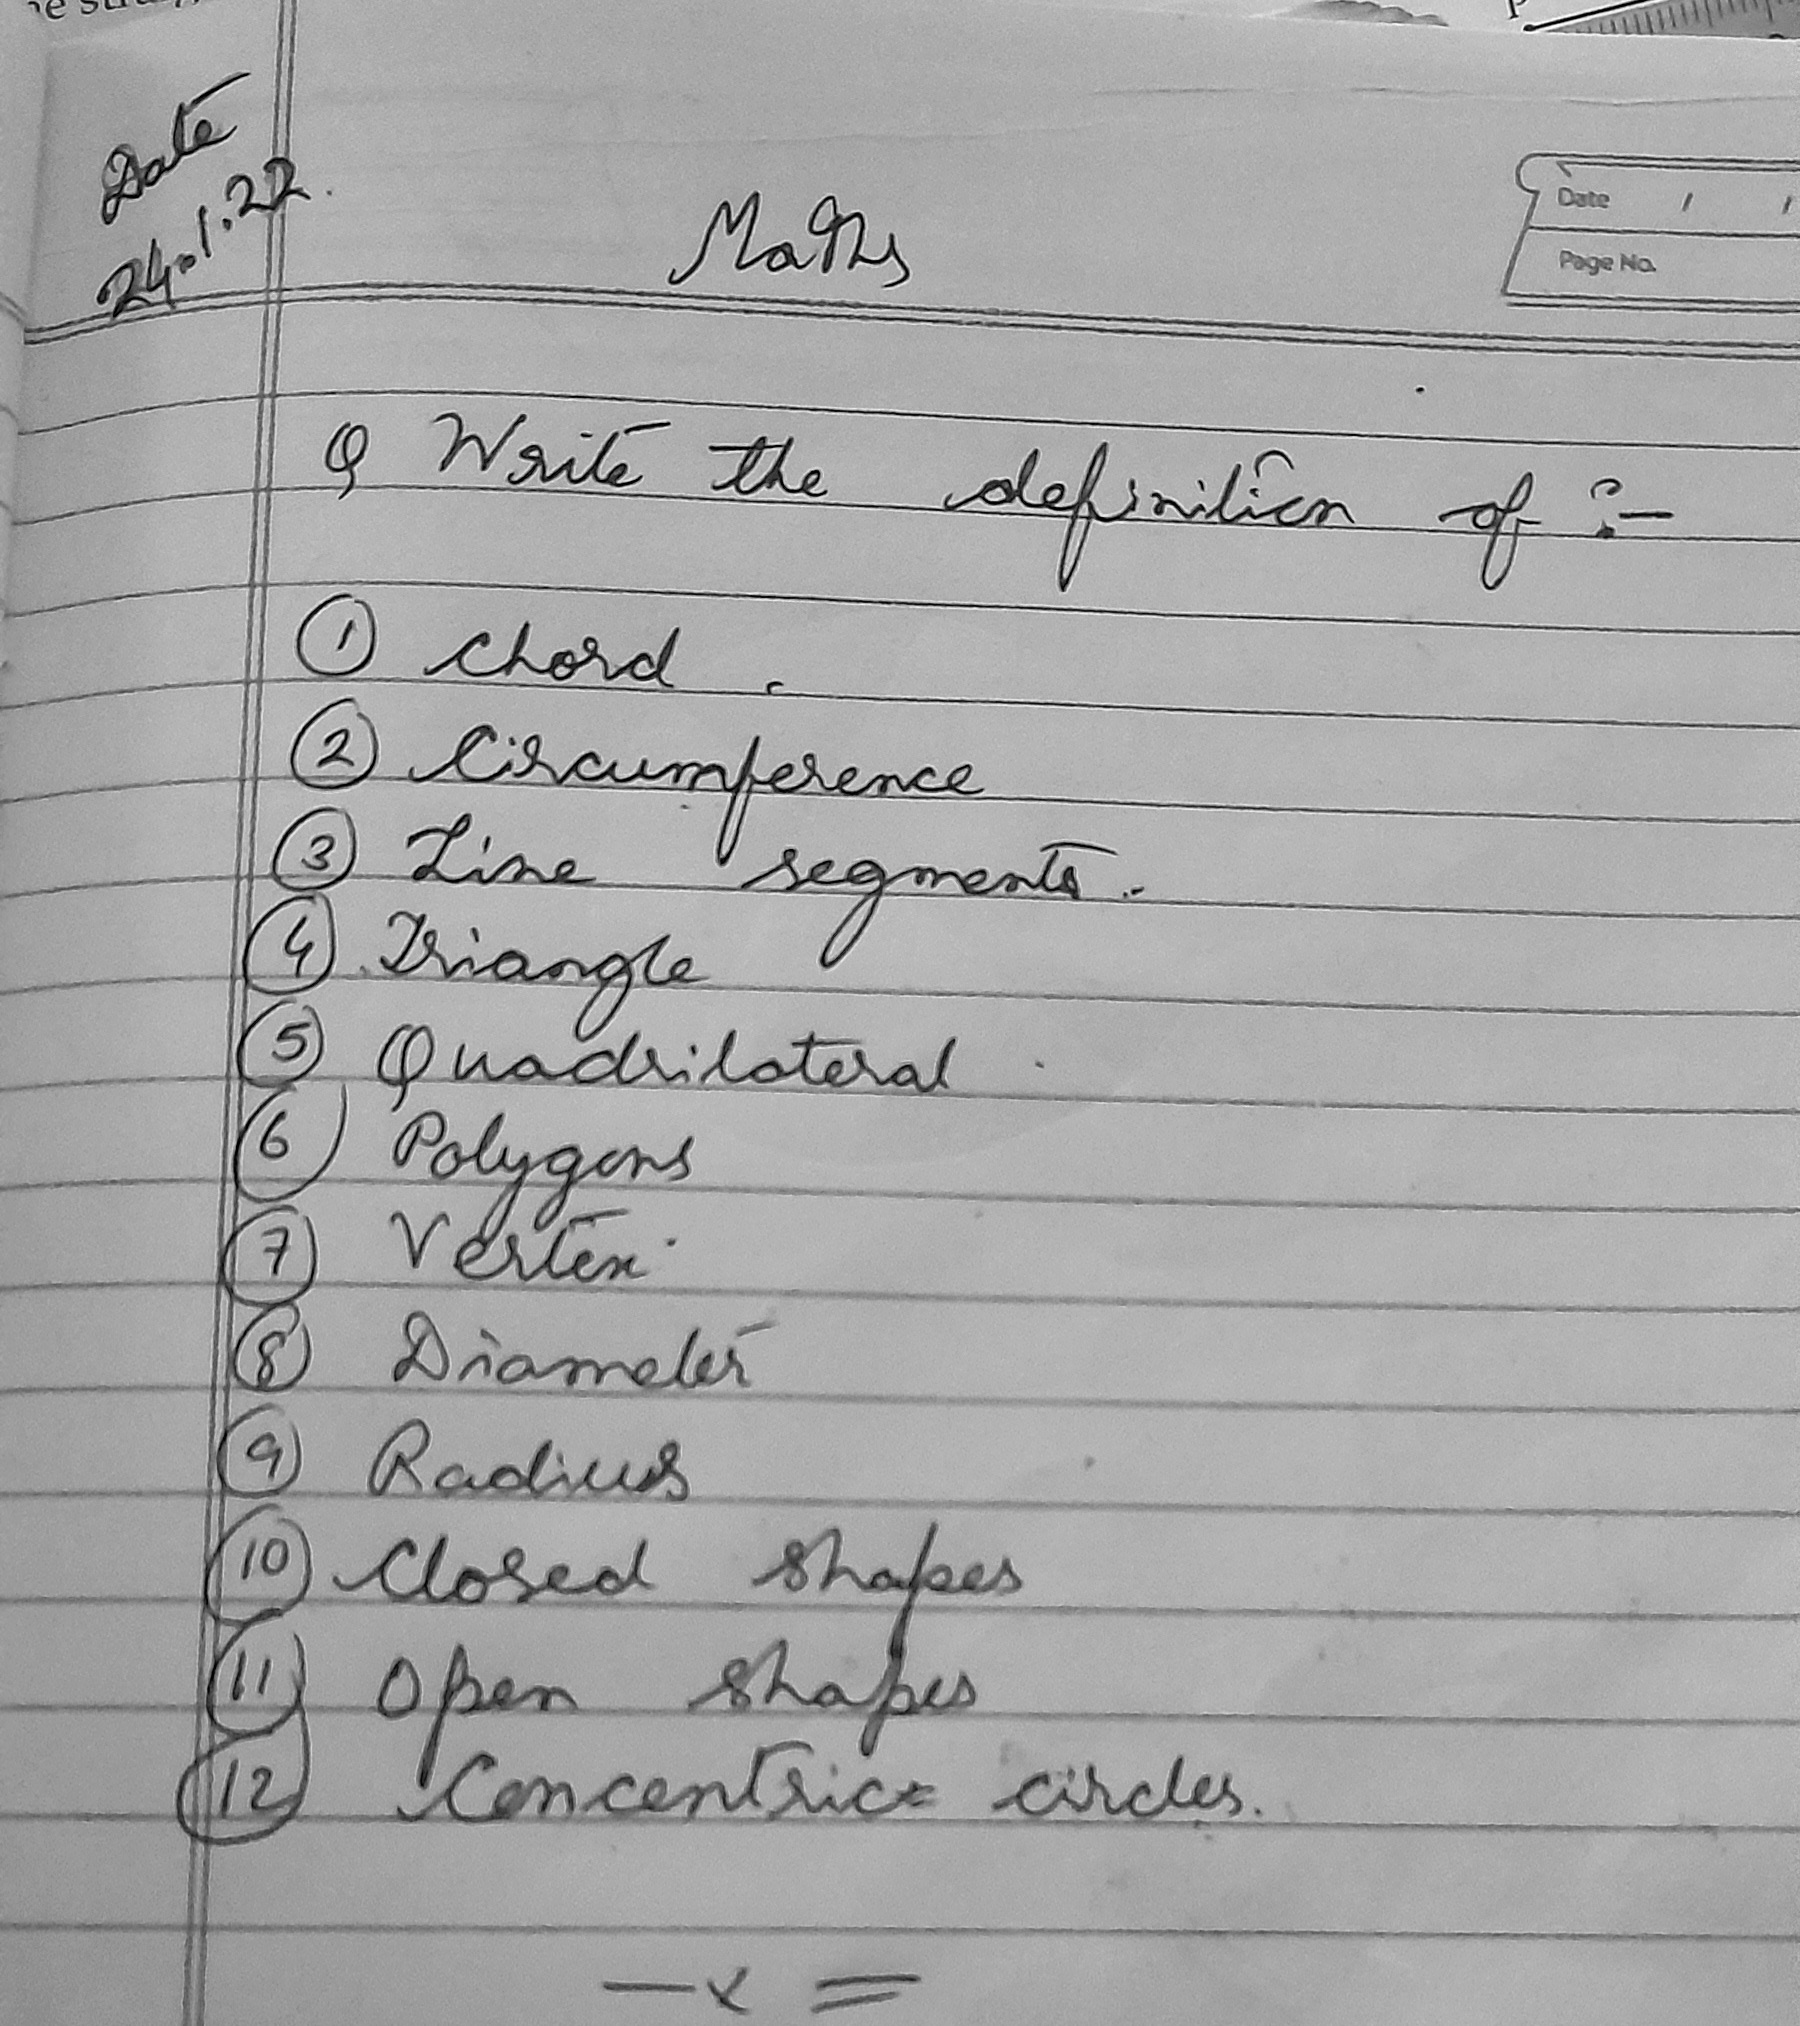 Date
24.1.22.
Maths
Date / /
Page No.
Q Write the definition of :-
① Chord .
② Circumference
③ Line segments.
④ Triangle
⑤ Quadrilateral
⑥ Polygons
⑦ Vertex
⑧ Diameter
⑨ Radius
⑩ Closed shapes
⑪ Open shapes
⑫ Concentric circles.
—x=